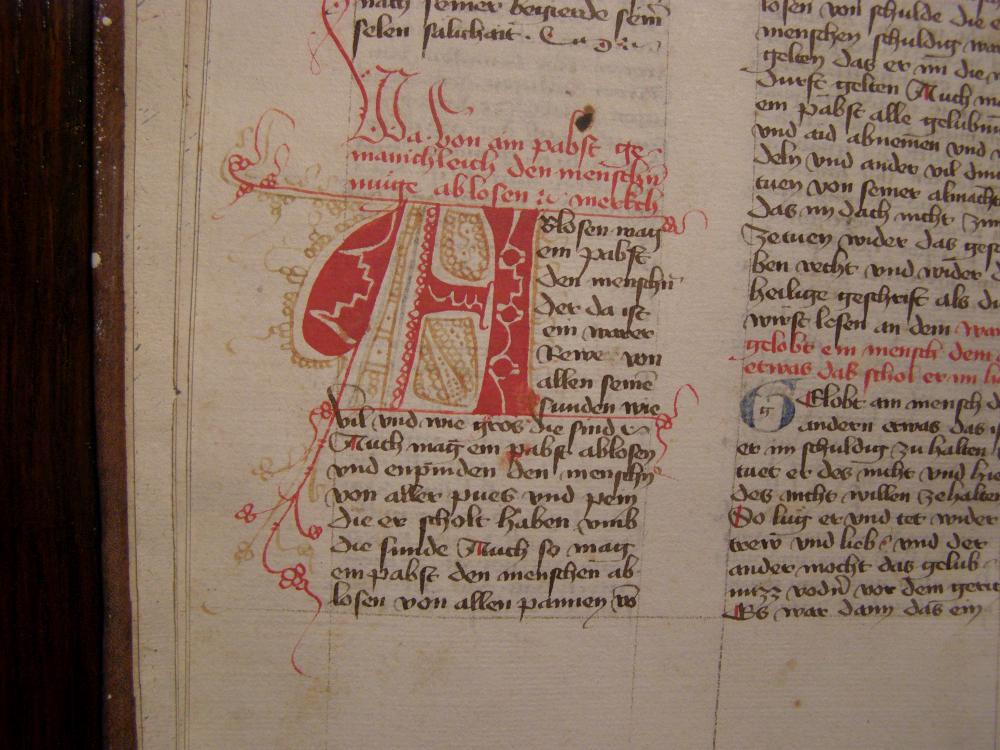 nach seiner begierde seiner
selen sälichait.
Wa von ain pabst ge
mainchleich den menschn
muge ablosen merkch
Ablosen mag
ein pabst
den menschn
der da ist
ein warer
Rewer von
allen seinen
sunden wie
vil vnd wie gros die sind
Auch mag ein pabst ablosen
vnd enpinden den menschn
von aller pues vnd pein
die er scholt haben vmb
die sunde Auch so mag
ein pabst den menschen ab
losen von allen pannen
losen von schulde die
menschen schuldig
gelten das er im die
durft gelten Auch
ein pabst alle gelubn
vnd aid abnemen vnd
deln vnd ander vil
tuen von seiner
das im doch nicht
Zetuen wider das
ben recht vnd wider
heilige geschrift als
wirst lesen an dem
gelobt ein mensch dem
etwas das schol er im
Gelobt ain mensch
andern etwas das
er im schuldig zu halten
tuet er des nicht vnd
des nicht willen zehalten
So lug er vnd tet wider
trew vnd lieb vnd der
ander mocht das gelub
vor dem
Es war dann das ein